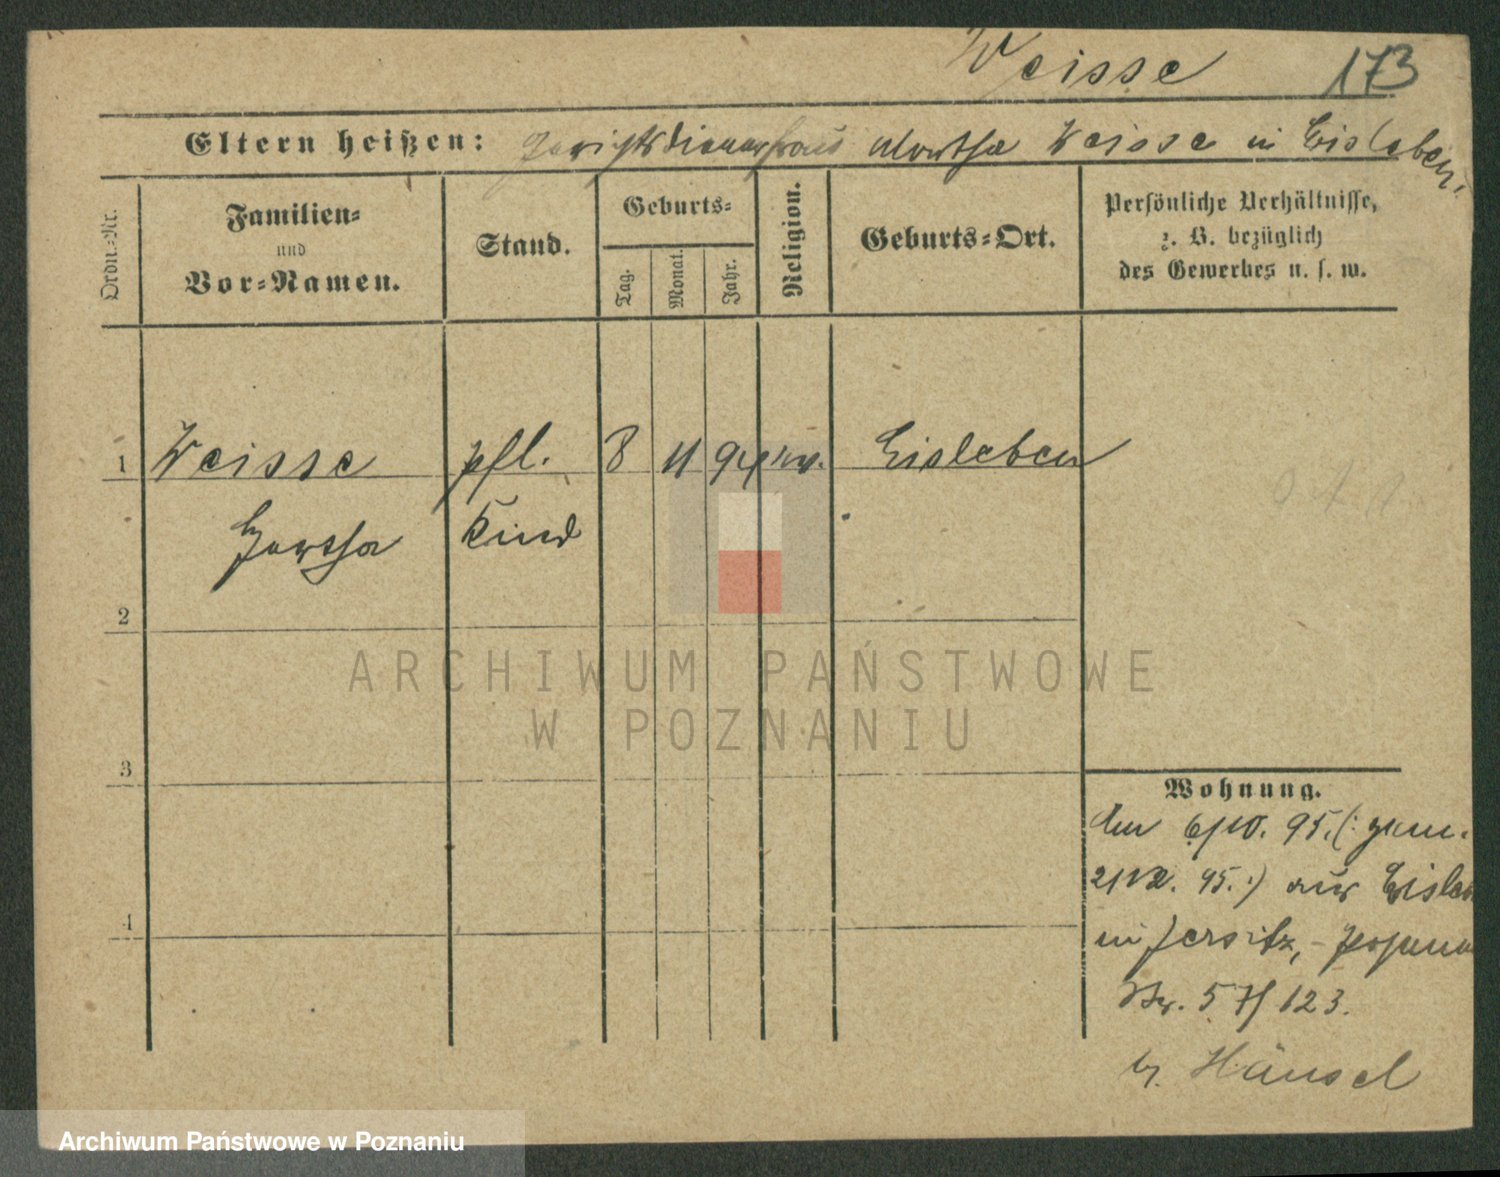 Weisse 173
Eltern heißen: Gerichtsdienerfrau Martha Weisse in Eisleben.
Ordn.-Nr. Familien- und Vor-Namen. Stand. Geburts- Tag. Monat. Jahr. Religion. Geburts-Ort. Persönliche Verhältnisse, z. B. bezüglich des Gewerbes u. s. w.
1 Weisse pfl. 8 11 94 ev. Eisleben
Hertha Kind
2
ARCHIWUM PAŃSTWOWE
W POZNANIU
3
4
Wohnung.
den 6/10. 95. (: gem.
95. :) aus Eisleb
in Jersitz, Posener
Str. 57/123.
b. Hänsel
Archiwum Państwowe w Poznaniu